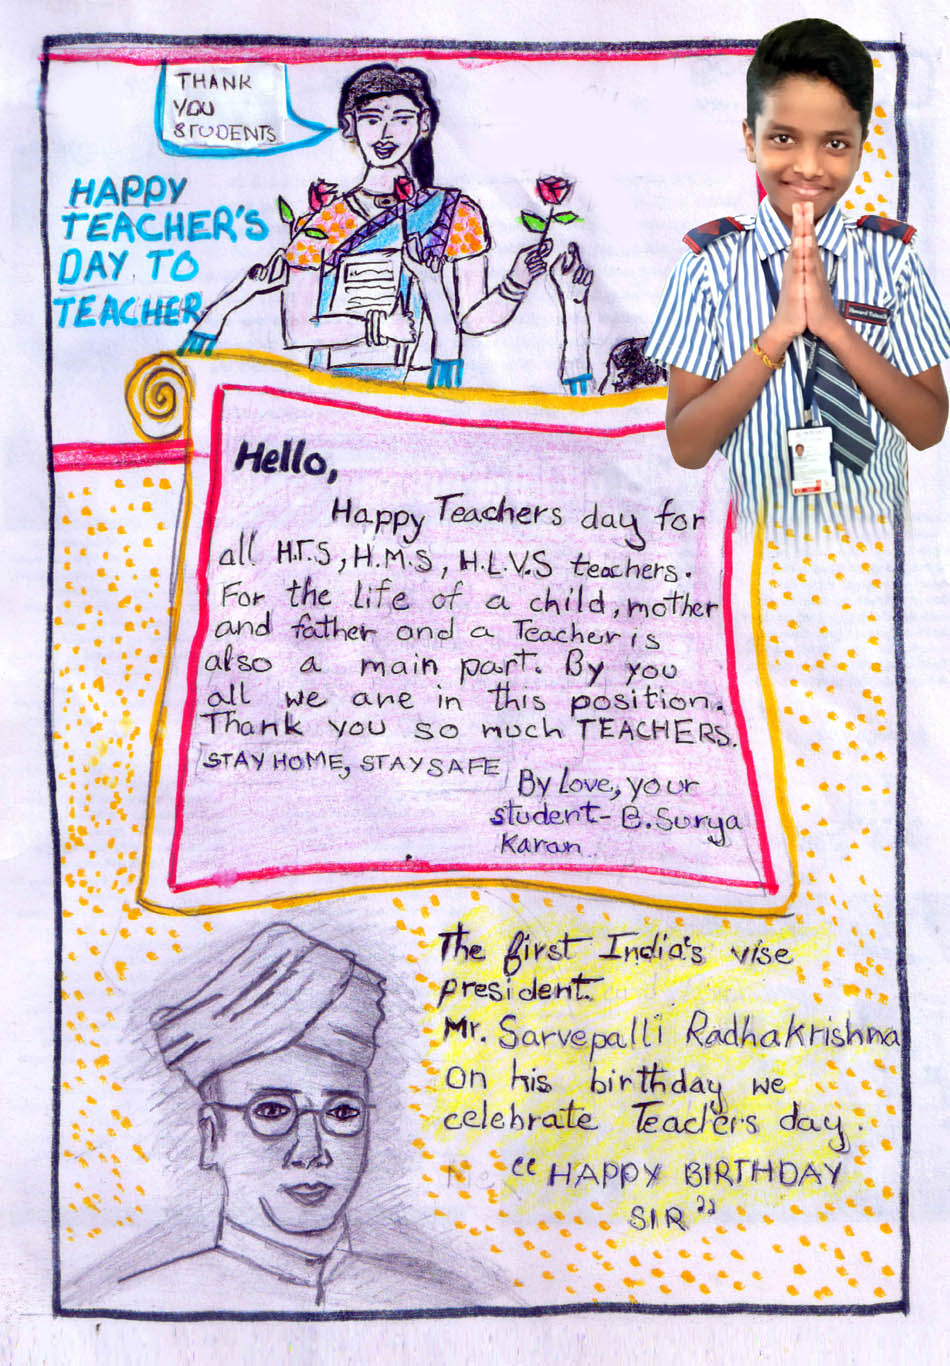 THANK
YOU
STUDENTS
HAPPY
TEACHER'S
DAY TO
TEACHER
Hello,
Happy Teachers day for
all H.T.S, H.M.S, H.L.V.S teachers.
For the life of a child, mother
and father and a Teacher is
also a main part. By you
all we are in this position.
Thank you so much TEACHERS.
STAY HOME, STAY SAFE
By Love, your
student- B. Surya
Karan
The first India's vise
president.
Mr. Sarvepalli Radhakrishna
On his birthday we
celebrate Teachers day.
"HAPPY BIRTHDAY
SIR"